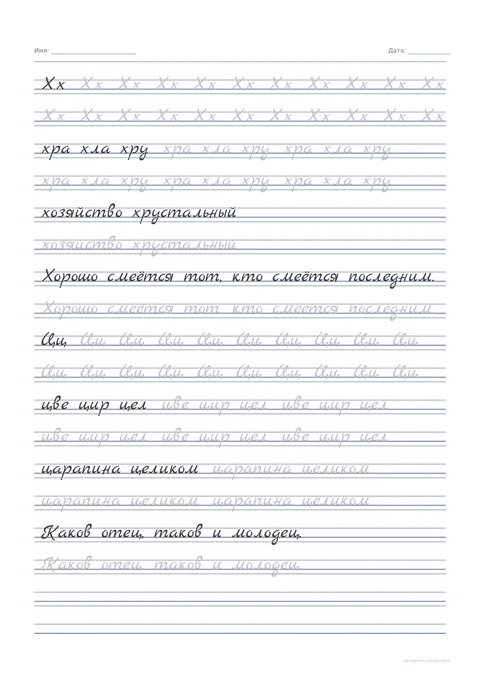 Имя: Дата:
Хх Хх Хх Хх Хх Хх Хх Хх Хх Хх Хх
Хх Хх Хх Хх Хх Хх Хх Хх Хх Хх Хх
хра хла хру хра хла хру хра хла хру
хра хла хру хра хла хру хра хла хру
хозяйство хрустальный
хозяйство хрустальный
Хорошо смеётся тот, кто смеётся последним.
Хорошо смеётся тот, кто смеётся последним
Цц Цц Цц Цц Цц Цц Цц Цц Цц Цц
Цц Цц Цц Цц Цц Цц Цц Цц Цц Цц
цве цир цел цве цир цел цве цир цел
цве цир цел цве цир цел цве цир цел
царапина целиком царапина целиком
царапина целиком царапина целиком
Каков отец, таков и молодец.
Каков отец, таков и молодец.